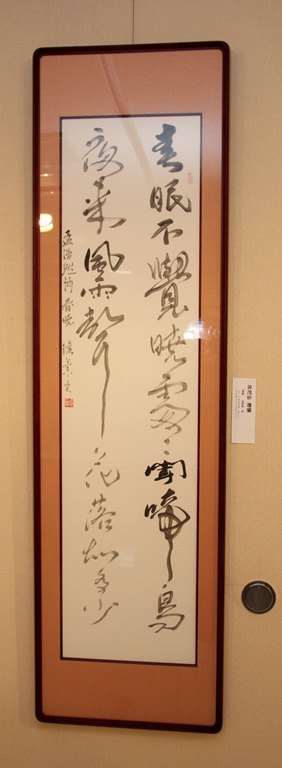 春眠不覺曉處々聞啼鳥
夜來風雨聲花落知多少
孟浩然詩春曉